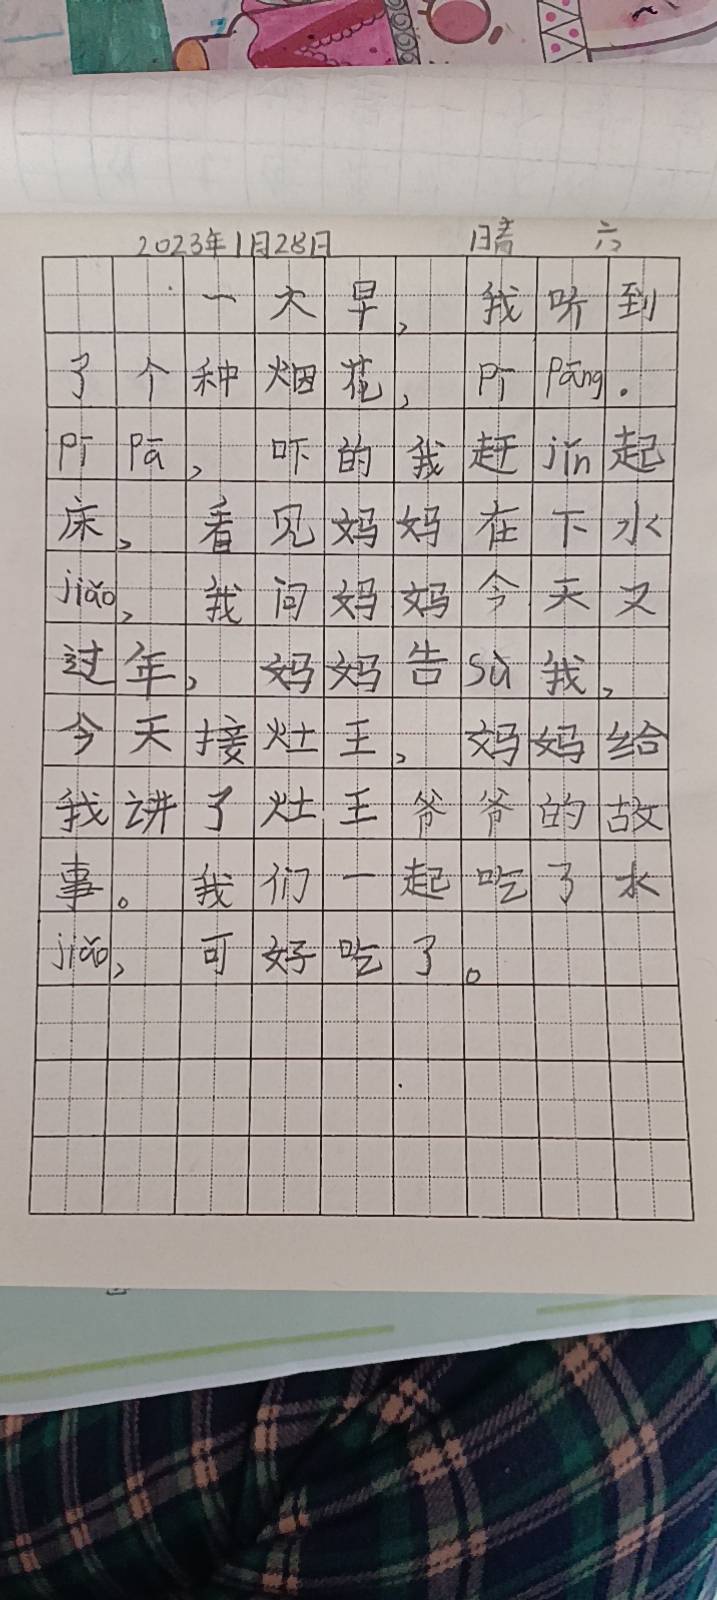 2023年1月28日 晴 六
一大早，我听到
了个种烟花，pī pāng.
pī pā，吓的我赶jǐn起
床，看见妈妈在下水
jiǎo，我问妈妈今天又
过年，妈妈告sù我，
今天接灶王，妈妈给
我讲了灶王爷爷的故
事。我们一起吃了水
jiǎo，可好吃了。